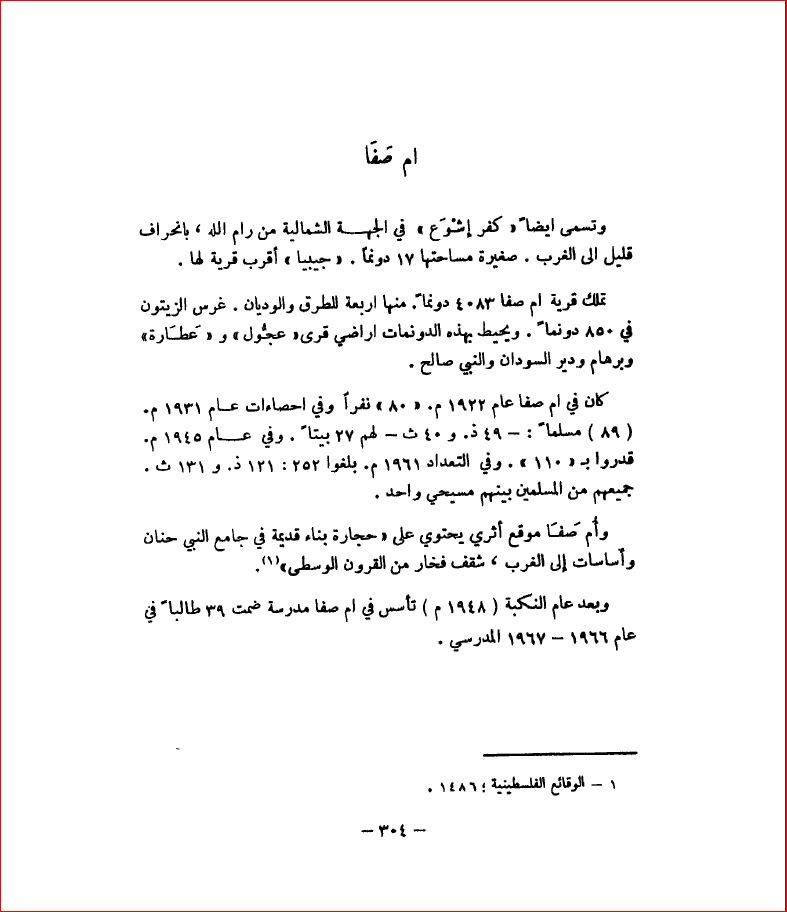 ام صَفَا
وتسمى ايضاً « كفر إشْوَع » في الجهـــة الشمالية من رام الله ، بانحراف
قليل الى الغرب . صغيرة مساحتها ١٧ دونماً . « جيبيا » أقرب قرية لها .
تملك قرية ام صفا ٤٠٨٣ دونماً. منها اربعة للطرق والوديان . غرس الزيتون
في ٨٥٠ دونماً . ويحيط بهذه الدونمات اراضي قرى « عجُّول » و « عَطـَارة»
وبرهام ودير السودان والنبي صالح .
كان في ام صفا عام ١٩٢٢ م. « ٨٠ » نفراً وفي احصاءات عـام ١٩٣١ م.
( ٨٩ ) مسلماً : – ٤٩ ذ. و ٤٠ ث – لهم ٢٧ بيتاً . وفي عــام ١٩٤٥ م.
قدروا بـ « ١١٠ » . وفي التعداد ١٩٦١ م. بلغوا ٢٥٢ : ١٢١ ذ. و ١٣١ ث .
جميعهم من المسلمين بينهم مسيحي واحد .
وأُم صَفـَا موقع أثري يحتوي على « حجارة بناء قديمة في جامع النبي حنان
وأساسات إلى الغرب ، شقف فخار من القرون الوسطى»(١).
وبعد عام النكبة ( ١٩٤٨ م ) تأسس في ام صفا مدرسة ضمت ٣٩ طالباً في
عام ١٩٦٦ – ١٩٦٧ المدرسي .
١ – الوقائع الفلسطينية ؛ ١٤٨٦ .
– ٣٠٤ –